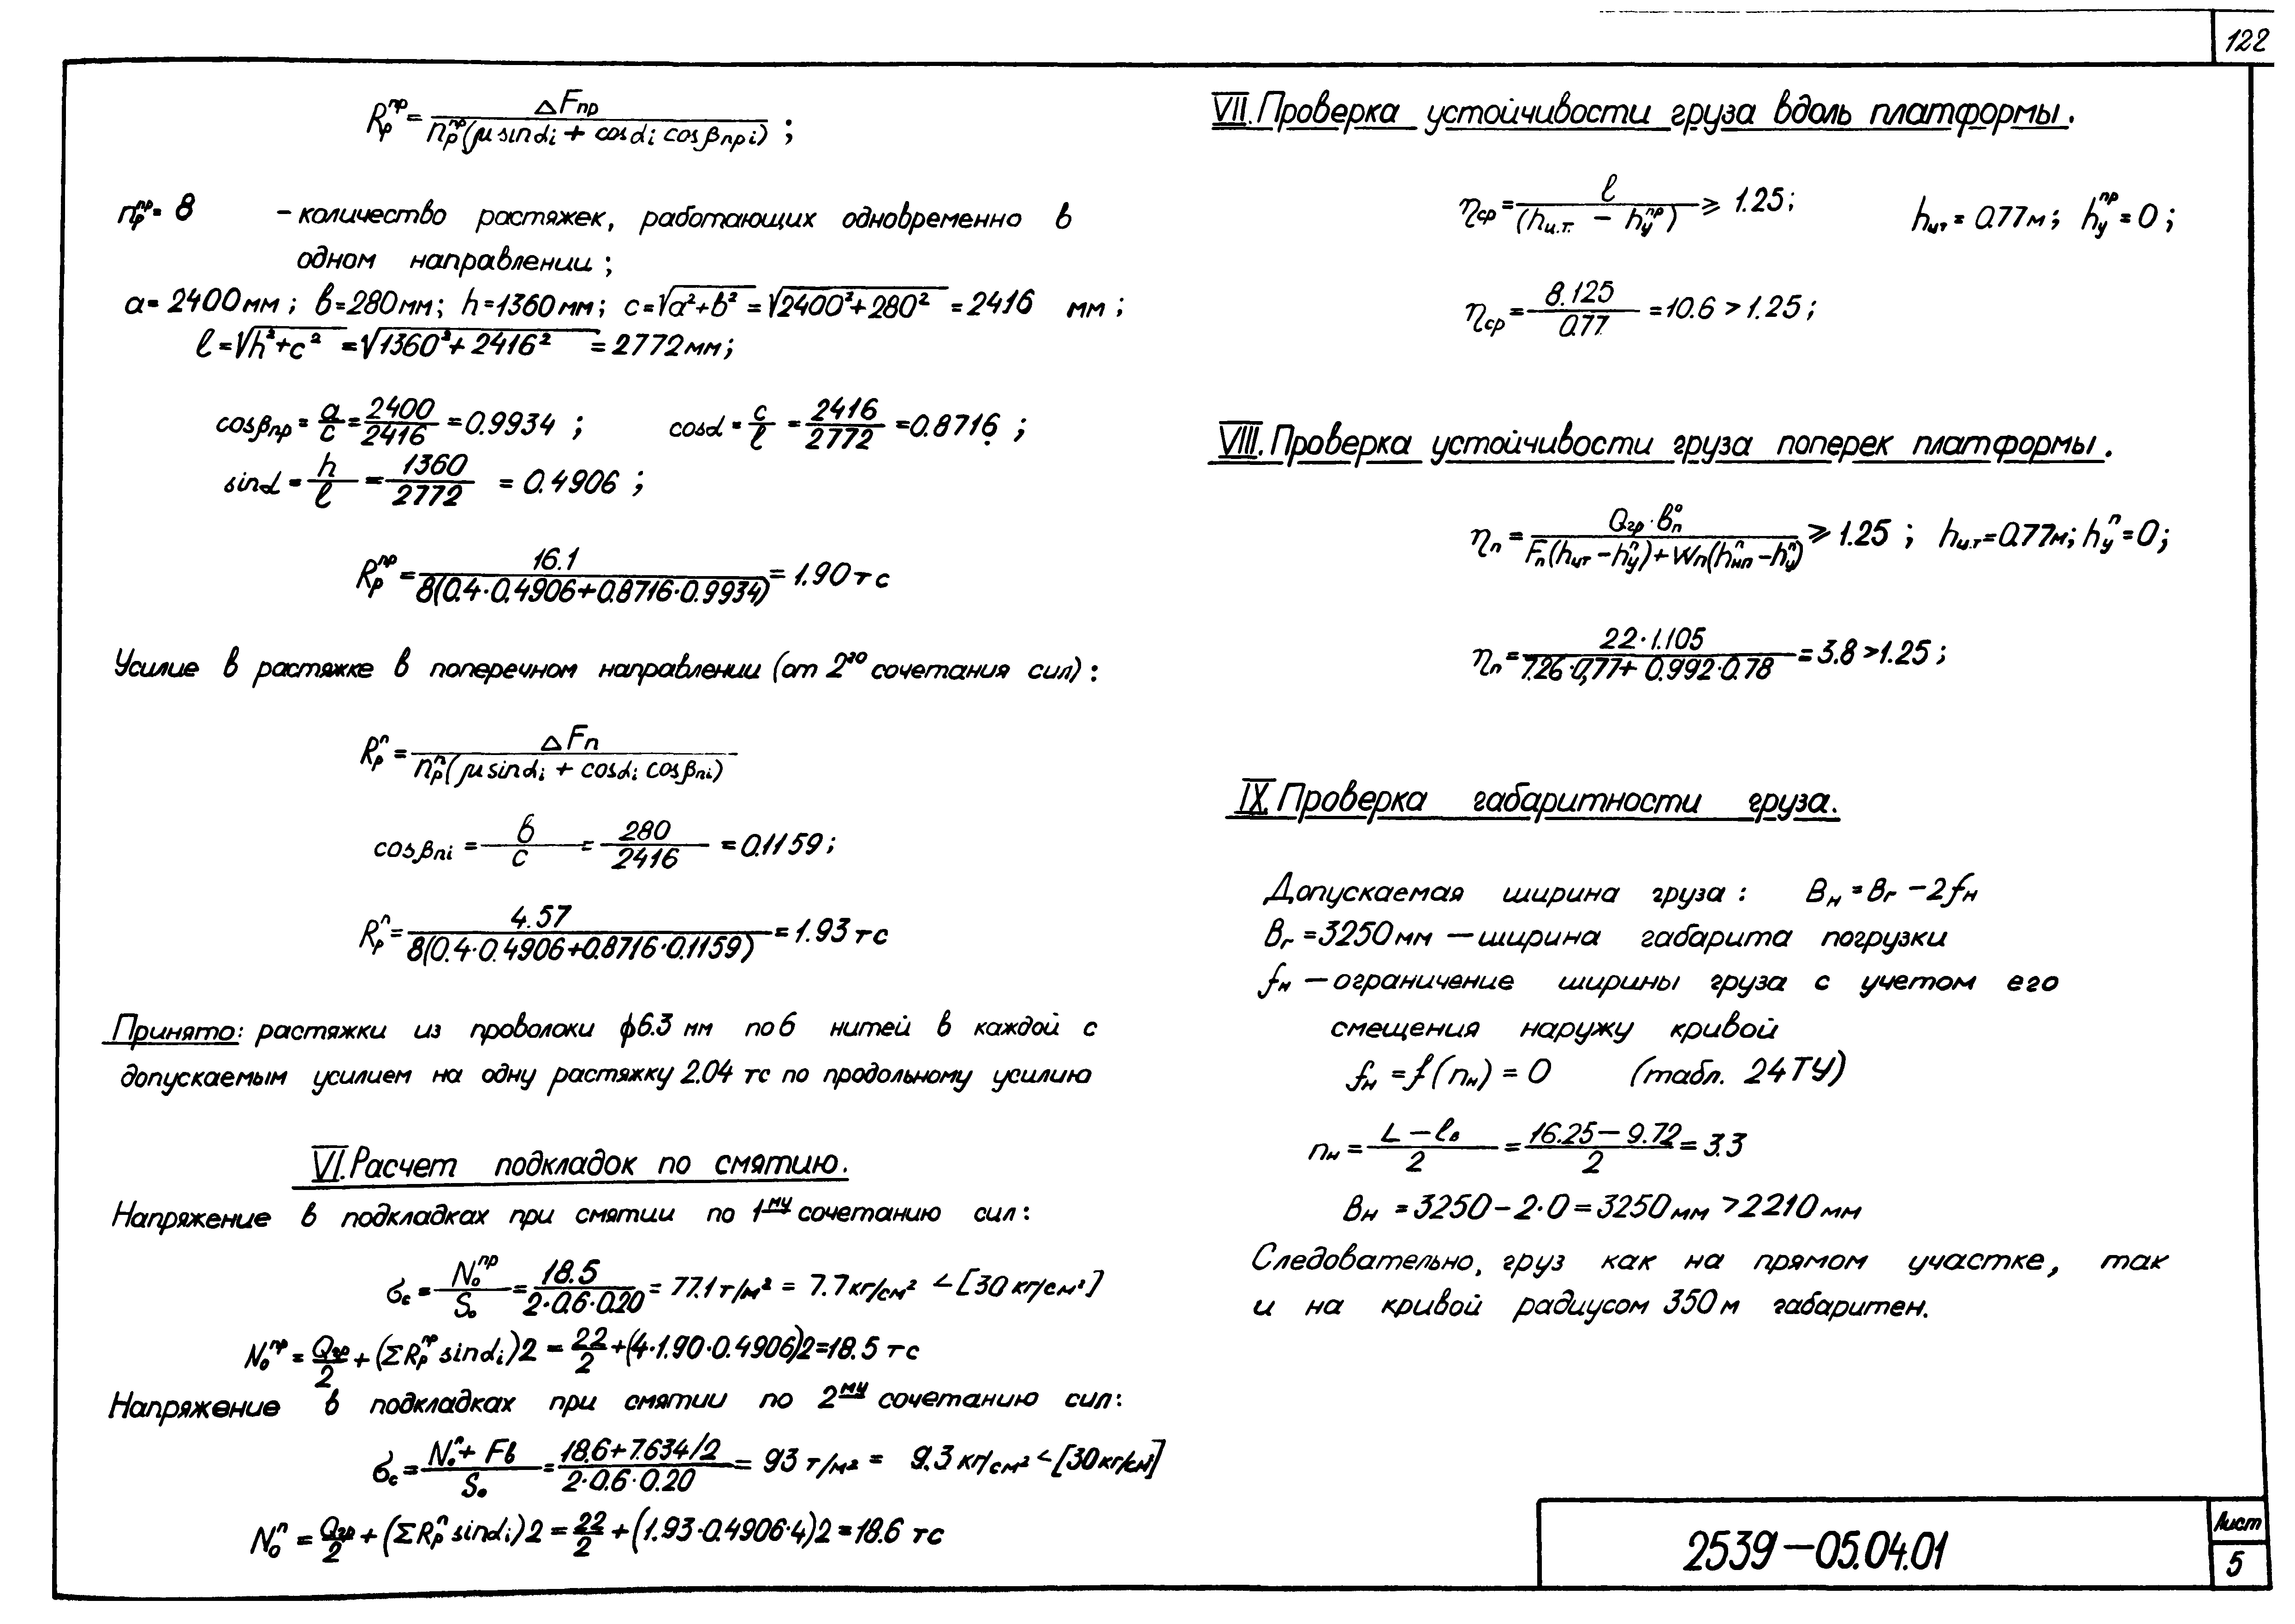 122
R_р^пр = ΔFпр / n_р^пр(μ sinα_i + cosα_i cosβ_прi) ;
n_р^пр = 8 – количество растяжек, работающих одновременно в
одном направлении ;
a = 2400 мм ; в = 280 мм ; h = 1360 мм ; c = √(a²+b²) = √(2400²+280²) = 2416 мм ;
ℓ = √(h²+c²) = √(1360²+2416²) = 2772 мм ;
cosβпр = a/c = 2400/2416 = 0.9934 ; cosα = c/ℓ = 2416/2772 = 0.8716 ;
sinα = h/ℓ = 1360/2772 = 0.4906 ;
R_р^пр = 16.1 / 8(0.4·0.4906+0.8716·0.9934) = 1.90 тс
Усилие в растяжке в поперечном направлении (от 2го сочетания сил) :
R_р^п = ΔFп / n_р^п(μ sinα_i + cosα_i cosβ_пi)
cosβ_пi = в/c = 280/2416 = 0.1159 ;
R_р^п = 4.57 / 8(0.4·0.4906+0.8716·0.1159) = 1.93 тс
Принято: растяжки из проволоки ϕ6.3 мм по 6 нитей в каждой с
допускаемым усилием на одну растяжку 2.04 тс по продольному усилию
VI. Расчет подкладок по смятию.
Напряжение в подкладках при смятии по 1му сочетанию сил :
σ_c = N_о^пр / S_о = 18.5 / 2·0.6·0.20 = 77.1 т/м² = 7.7 кг/см² < [30 кг/см²]
N_о^пр = Qгр/2 + (ΣR_р^пр sinα_i)2 = 22/2 + (4·1.90·0.4906)2 = 18.5 тс
Напряжение в подкладках при смятии по 2му сочетанию сил :
σ_c = N_о^п + Fв / S_о = 18.6+7.634/2 / 2·0.6·0.20 = 93 т/м² = 9.3 кг/см² < [30 кг/см²]
N_о^п = Qгр/2 + (ΣR_р^п sinα_i)2 = 22/2 + (1.93·0.4906·4)2 = 18.6 тс
VII. Проверка устойчивости груза вдоль платформы.
η_ср = ℓ / (hц.т. – h_у^пр) ⩾ 1.25 ; hцт = 0.77 м ; h_у^пр = 0 ;
η_ср = 8.125 / 0.77 = 10.6 > 1.25 ;
VIII. Проверка устойчивости груза поперек платформы.
η_п = Qгр · в_п^о / Fп(hцт – h_у^п) + Wп(h_нп^п – h_у^п) ⩾ 1.25 ; hц.т = 0.77 м ; h_у^п = 0 ;
η_п = 22·1.105 / 7.26·0,77 + 0.992·0.78 = 3.8 > 1.25 ;
IX. Проверка габаритности груза.
Допускаемая ширина груза : Bн = Bг – 2fн
Bг = 3250 мм – ширина габарита погрузки
fн – ограничение ширины груза с учетом его
смещения наружу кривой
fн = f(nн) = 0 (табл. 24 ТУ)
nн = L – ℓв / 2 = 16.25 – 9.72 / 2 = 3.3
Bн = 3250 – 2·0 = 3250 мм > 2210 мм
Следовательно, груз как на прямом участке, так
и на кривой радиусом 350 м габаритен.
2539–05.04.01
Лист
5